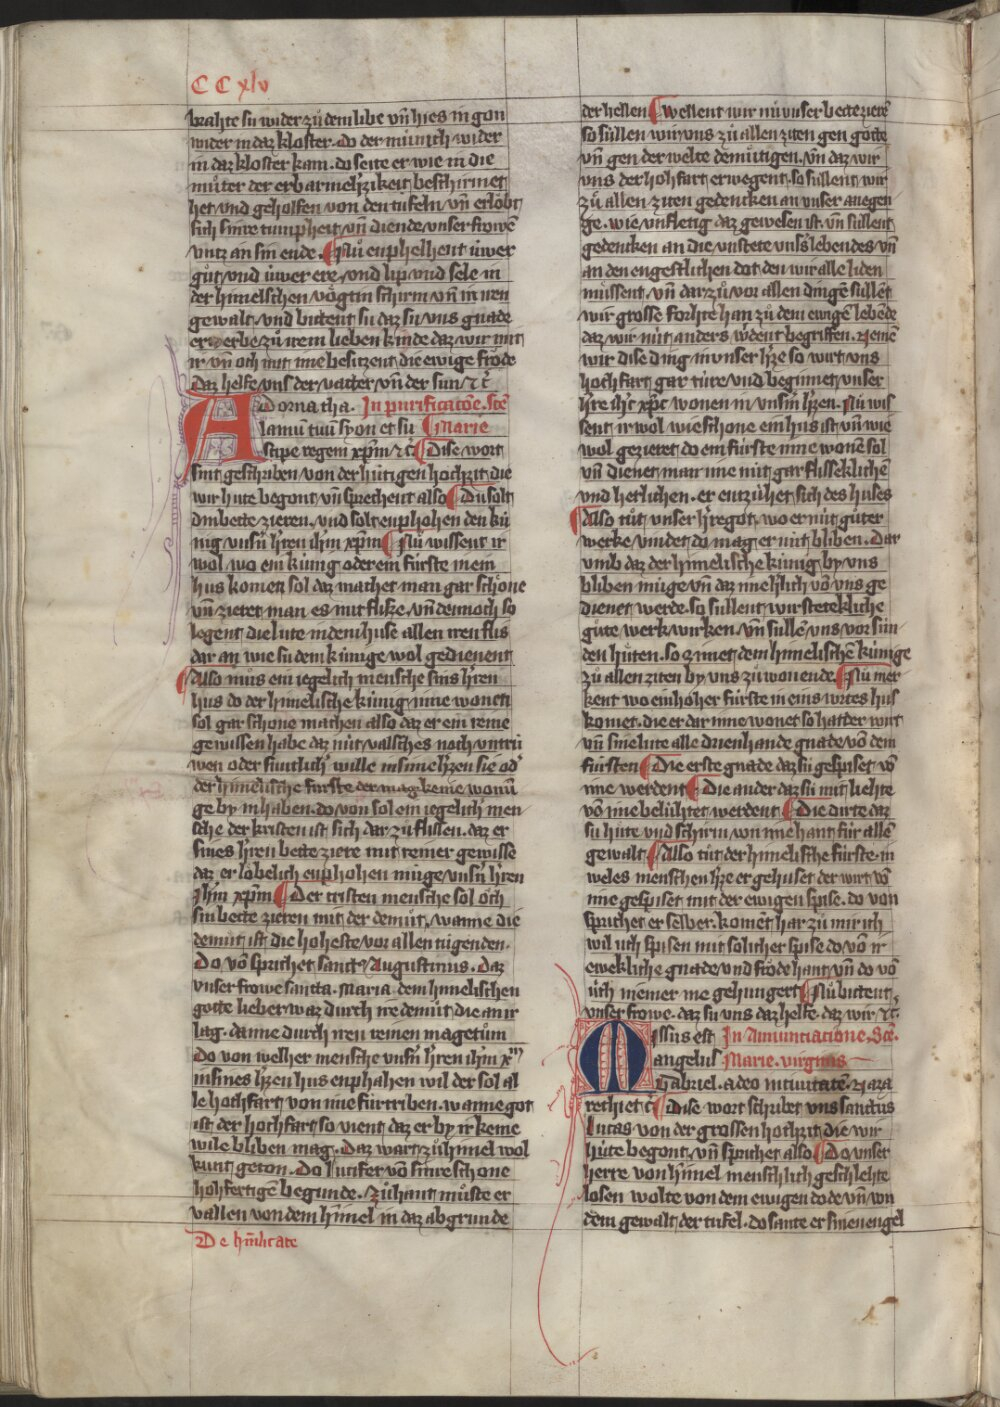 CCxlv
brahte su wider zů dem libe vn̄ hies in gon
wider in daz kloster. do der můnich wider
in daz kloster kam. do seite er wie in die
můter der erbarmeh'zikeit beschirmet
het vnd geholfen von den tufeln vn̄ erlöst
sich sinre tumpheit vn̄ diende vnser frowē
vntz an sin ende. Nů enphelhent ůwer
gůt vnd ůwer ere vnd lip vnd sele in
der himelschen vögtin schirm vn̄ in iren
gewalt vnd bittent su daz su vns gnade
erwerbe zů irem lieben kinde daz wir mit
ir vn̄ och mit ime besitzent die ewige fröde
daz helfe vns der vatter vn̄ der sun ⁊ c̄
Adorna tha. In purificatōe. Scē
lamū tuū syon et su Marie
scipe regem xp̄m ⁊ c̄ Dise wort
sint geschriben von der hůtigen hochzit die
wir hute begont vn̄ sprechent also Du solt
din bette zieren. vnd solt enphohen den kü
nig vnsn̄ h'ren ih'm xp̄m Nů wissent ir
wol wo ein kůnig oder ein fůrste in ein
hus komen sol daz machet man gar schöne
vn̄ zieret man es mit flisze vn̄ dennoch so
legent die lute in dem huse allen iren flis
dar an wie su dem kůnige wol gedienent
Also můs ein iegelich mensche sins h'ren
hus do der himelische kůnig inne wonen
sol gar schone machen also daz er ein reine
gewissen habe daz nůt valsches noch vntrü
wen oder sůntlich' wille in sime h'zen sie od'
der himelische fůrste der mag keine wonū
ge by im haben. do von sol ein iegelich men
sche der kristen ist sich dar zů flissen. daz er
sines h'ren bette ziere mit reiner gewisse
daz er löbelich enphohen můge vnsn̄ h'ren
Ih'm xp̄m Der cristen mensche sol öch
sin bette zieren mit der demůt. wanne die
demůt ist die hoheste vor allen tugenden.
Do vō sprichet sanctꝯ Augustinus. Daz
vnser frowe sancta. Maria dem himelischen
gotte lieber waz durch ire demůt die an ir
lag. danne durch iren reinen magetům
Do von welher mensche vnsn̄ h'ren ih'm xp̄m
in sines h'zen hus enphahen wil der sol al
le hochfart von ime fůrtriben. wanne got
ist der hochfart so vient daz er by ir keine
wile bliben mag. Daz wart zů himel wol
kunt geton. Do lucifer vō sinre schone
hohfertigē begunde. Zůhant můste er
vallen von dem h'imel in daz abgrunde
De hūilitate
der hellen Wellent wir nů vnser bette zierē
so sůllen wir vns zů allen ziten gen gotte
vn̄ gen der welte demůtigen. vn̄ daz wir
vns der hohfart erwegent. so sůllent wir
zů allen ziten gedencken an vnser anegen
ge. wie vnfletig daz gewesen ist. vn̄ sůllent
gedencken an die vnstete vnss lebendes vn̄
an den engestlichen dot den wir alle liden
můssent. vn̄ dar zů vor allen dingē sůllēt
wir grosse forhte han zů dem ewigē lebēde
daz wir nůt anders w'dent begriffen. Nemē
wir dise ding in vnser h'ze so wirt vns
hochfart gar tůre vnd beginnet vnser
h're ih'c xp̄c wonen in vnsn̄ h'zen. Nů wis
sent ir wol wie schone ein hus ist vn̄ wie
wol gezieret do ein fůrste inne wonē sol
vn̄ dienet man ime nůt gar flisseklichē
vnd herlichen. er entzůhet sich des huses
Also tůt vnser h'regot. wo er nůt gůter
werke vindet do mag er nůt bliben. Dar
vmb daz der himelische kůnig by vns
bliben můge vn̄ daz ime h'lich vō vns ge
dienet werde. so sullent wir stetekliche
gůte werk wirken. vn̄ sůllē vns vor sůn
den hůten. so zimet dem himelischē kůnige
zů allen ziten by vns zů wonende. Nů mer
kent wo ein hoher fůrste in eins wirtes hus
komet. die er dar inne wonet so hat der wirt
vn̄ sine lute alle drier hande gnade vō dem
fůrsten Die erste gnade daz sů gespiset vō
ime werdent Die ander daz sů mit liehte
vō ime belůhtet werdent Die dirte daz
su hůte vnd schirm von ime hant fůr allē
gewalt Also tůt der himelische fůrste. in
weles menschen h'ze er gehuset der wirt vō
ime gespiset mit der ewigen spise. do von
sprichet er selber. komēt har zů mir ich
wil uch spisen mit solicher spise do vō ir
eweklliche gnade vnd fröde hant vn̄ do vō
ůch niemer me gehungert Nů bittent
vnser frowe. daz su vns daz helfe. daz wir ⁊c̄.
Missus est In Annunciacione. Scē.
angelus Marie. virginis
Gabriel. a deo in ciuitatē. Naza
reth et c̄ Dise wort schribet vns sanctus
lucas von der grossen hochzit die wir
hůte begont. vn̄ sprichet also Do vnser
herre von h'imel menschlich geschlehte
losen wolte von dem ewigen dode vn̄ von
dem gewalt der tufel. do sante er sinen engel